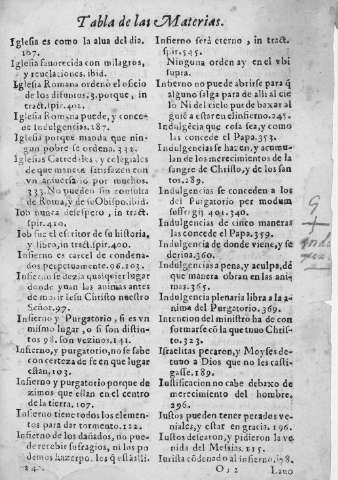 Tabla de las Materias.
Iglesia es como la alua del dia.
107.
Iglesia fauorecida con milagros,
y reuelaciones. ibid.
Iglesia Romana ordenò el oficio
de los difuntos.3. porque, in
tract. spir. 402.
Iglesia Romana puede, y conce-
de indulgencias. 187.
Iglesia porque manda que nin-
gun pobre se ordene. 332.
Iglesias Catredales, y colegiales
de que manera satisfazen con
vn aniuersario por muchos.
333. No pueden sin consulta
de Roma, y de su Obispo. ibid.
Iob nunca desespero, in tract.
spir. 420.
Iob fue el escritor de su historia,
y libro, in tract. spir. 400.
Infierno es carcel de condena-
dos perpetuamente. 96. 103.
Infierno se dezia qualquier lugar
donde yuan las animas antes
de morir Iesu Christo nuestro
Señor. 97.
Infierno y Purgatorio, si es vn
mismo lugar, o si son distin-
tos 98. son vezinos. 141.
Infierno, y purgatorio, no se sabe
con certeza de fe en que lugar
estan, 103.
Infierno y purgatorio porque de
zimos que estan en el centro
de la tierra. 107.
Infierno tiene todos los elemen-
tos para dar tormento. 122.
Infierno de los dañados, no pue-
de recebir sufragios, ni los po
demos hazerpo. los q̃ estàs lli.
24.
Infierno serà eterno, in tract.
spir. 545.
Ninguna orden ay en el vbi
supra.
Infierno no puede abrirse para q̃
alguno salga para de alli al cie
lo Ni del cielo puede baxar al
guiẽ a estar en el infierno. 245.
Indulgẽcia que cosa sea, y como
las concede el Papa. 353.
Indulgencias se hazen, y acumu-
lan de los merecimientos de la
sangre de Christo, y de los san
tos. 289.
Indulgencias se conceden a los
del Purgatorio per modum
suffragij 401. 340.
Indulgencias de cinco maneras
las concede el Papa. 359.
Indulgencia de donde viene, y se
deriua. 360.
Indulgencias a pena, y a culpa, dẽ
que manera obran en las ani-
mas. 365.
Indulgencia plenaria libra a la a-
nima del Purgatorio. 369.
Intencion del ministro hà de con
formarse cõ la que tuuo Chris-
to. 323.
Israelitas pecaron, y Moyses de-
tuuo a Dios que no les casti-
gasse. 189.
Iustificacion no cabe debaxo de
merecimiento del hombre.
296.
Iustos pueden tener pecados ve-
niales, y estar en gracia. 196.
Iustos dessearon, y pidieron la ve
nida del Messias. 215.
Iurista cõdenado al infierno. 178.
O o 2 Lauo